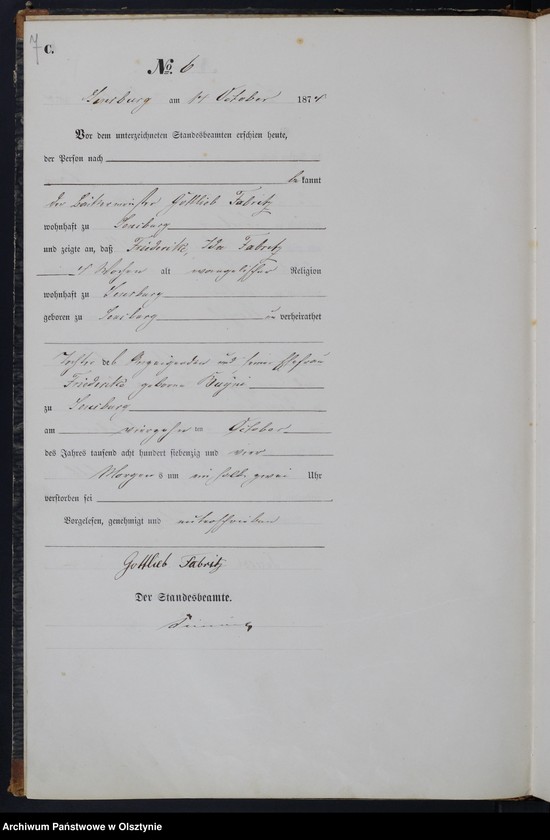 7
C.
No. 6
Sensburg am 14 October 1874
Vor dem unterzeichneten Standesbeamten erschien heute,
der Person nach
bekannt
der Gottlieb Fabritz
wohnhaft zu Sensburg
und zeigte an, daß Friederike, Ida Fabritz
4 Wochen alt evangelischer Religion
wohnhaft zu Sensburg
geboren zu Sensburg un verheirathet
Tochter des Anzeigenden und seiner Ehefrau
Friederike geborne
zu Sensburg
am vierzehn ten October
des Jahres tausend acht hundert siebenzig und vier
Morgen s um ein halb zwei Uhr
verstorben sei
Vorgelesen, genehmigt und unterschrieben
Gottlieb Fabritz
Der Standesbeamte.
Archiwum Państwowe w Olsztynie